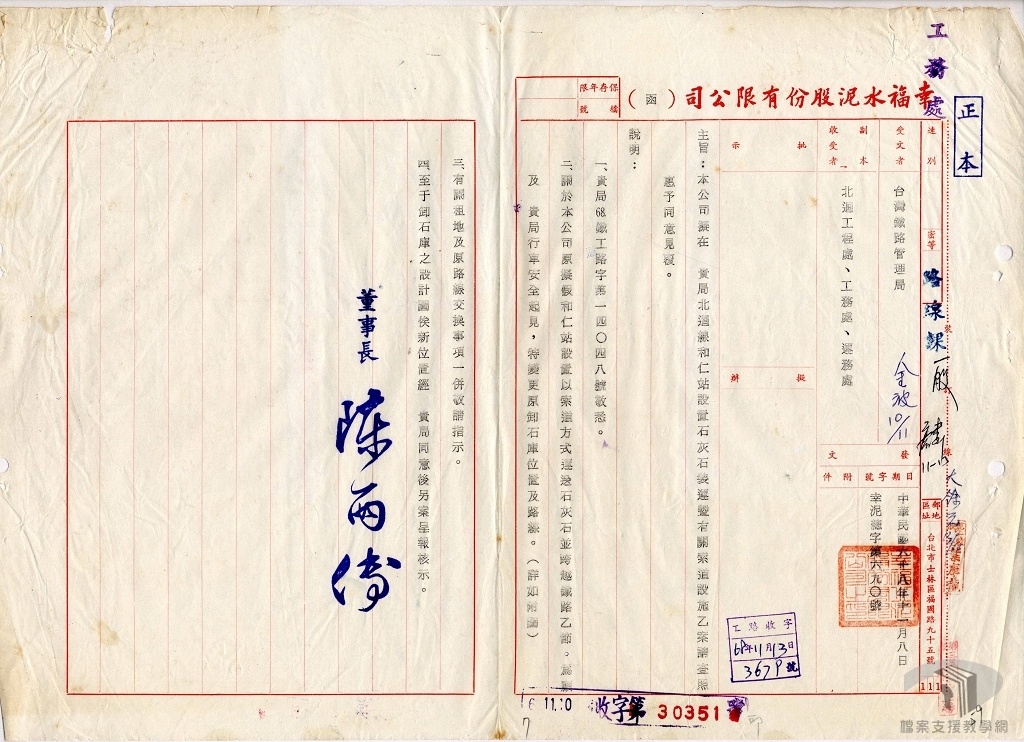 工務處
正本
幸福水泥股份有限公司(函)
保存年限
檔號
速別
密等
路線課
受文者
台灣鐵路管理局
副本收受者
北迴工程處、工務處、運務處
批示
擬辦
發文
日期
字號
附件
中華民國六十八年十一月八日
幸泥總字第六九〇號
郵地區址
台北市士林區福國路九十五號
111
10/11
主旨:本公司擬在 貴局北迴線和仁站設置石灰石裝運暨有關索道設施乙案請查照
惠予同意見復。
說明:
一、貴局68鐵工路字第一四〇四八號敬悉。
二、關於本公司原擬假和仁站設置以索道方式運送石灰石並跨越鐵路乙節。為顧
及 貴局行車安全起見,特變更原卸石庫位置及路線。(詳如附圖)
三、有關租地及原路線交換事項一併敬請指示。
四、至于卸石庫之設計圖俟新位置經 貴局同意後另案呈報核示。
董事長 陳兩傳
工路收字
68年11月13日
3679號
11.10
收字第30351號
檔案支援教學網